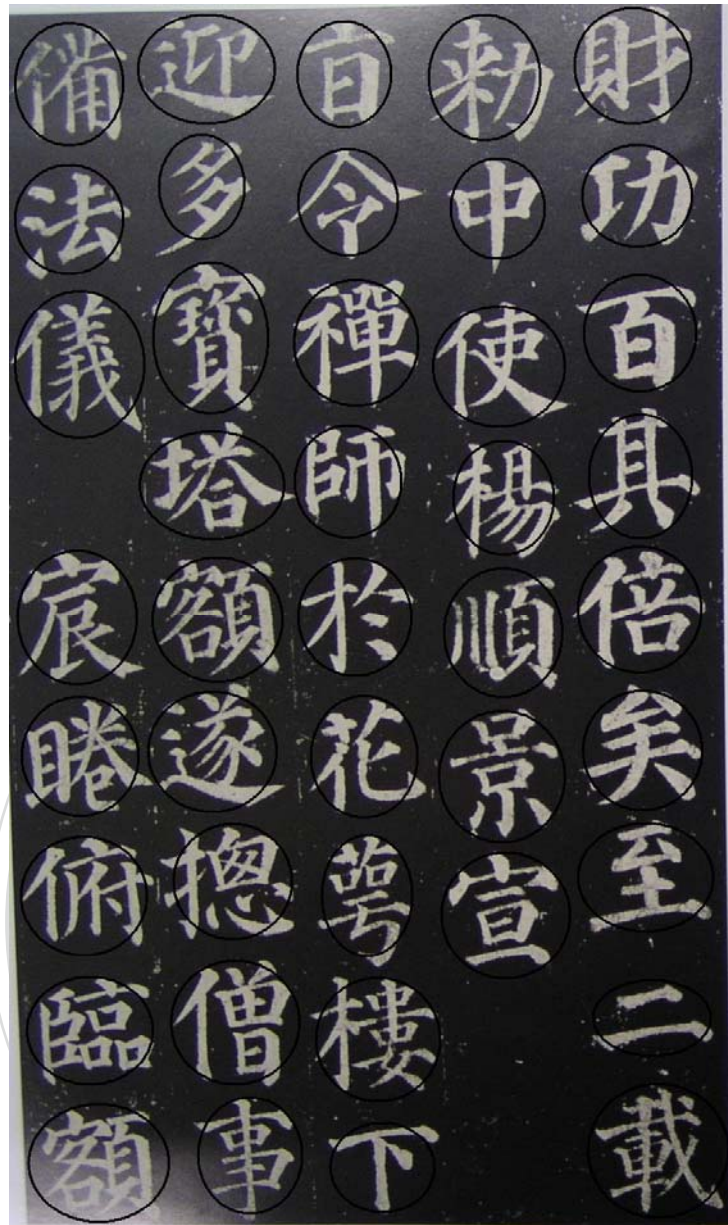 財功百具倍矣至二載
勑中使楊順景宣
旨令禪師於花萼樓下
迎多寶塔額遂揔僧事
備法儀 宸睠俯臨額